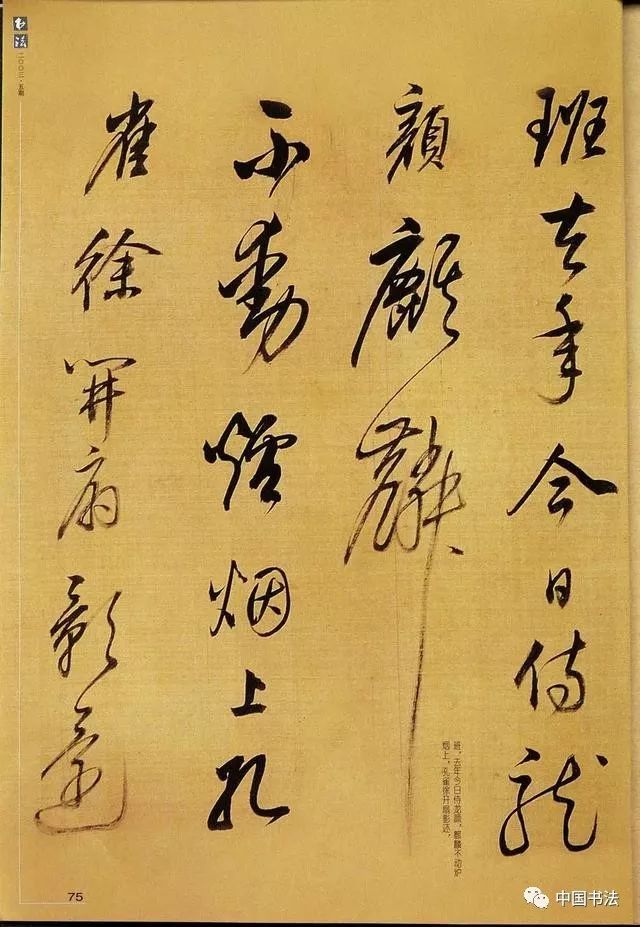 班去年今日侍龍
顔麒麟
不動爐烟上孔
雀徐開扇影還
书法
二〇〇三·五期
班。去年今日侍龙颜，麒麟不动炉
烟上，孔雀徐开扇影还，
75
中国书法